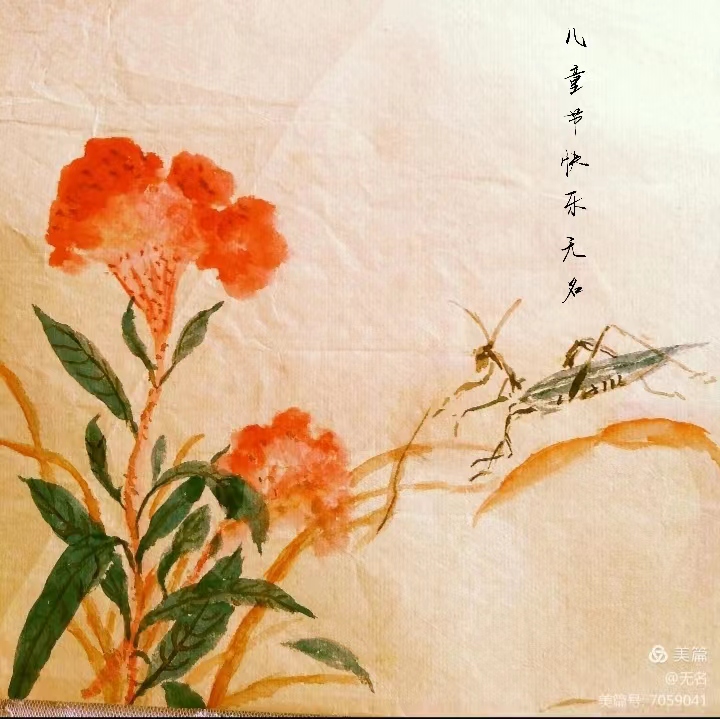 儿童节快乐无名
美篇
@无名
美篇号: 7059041